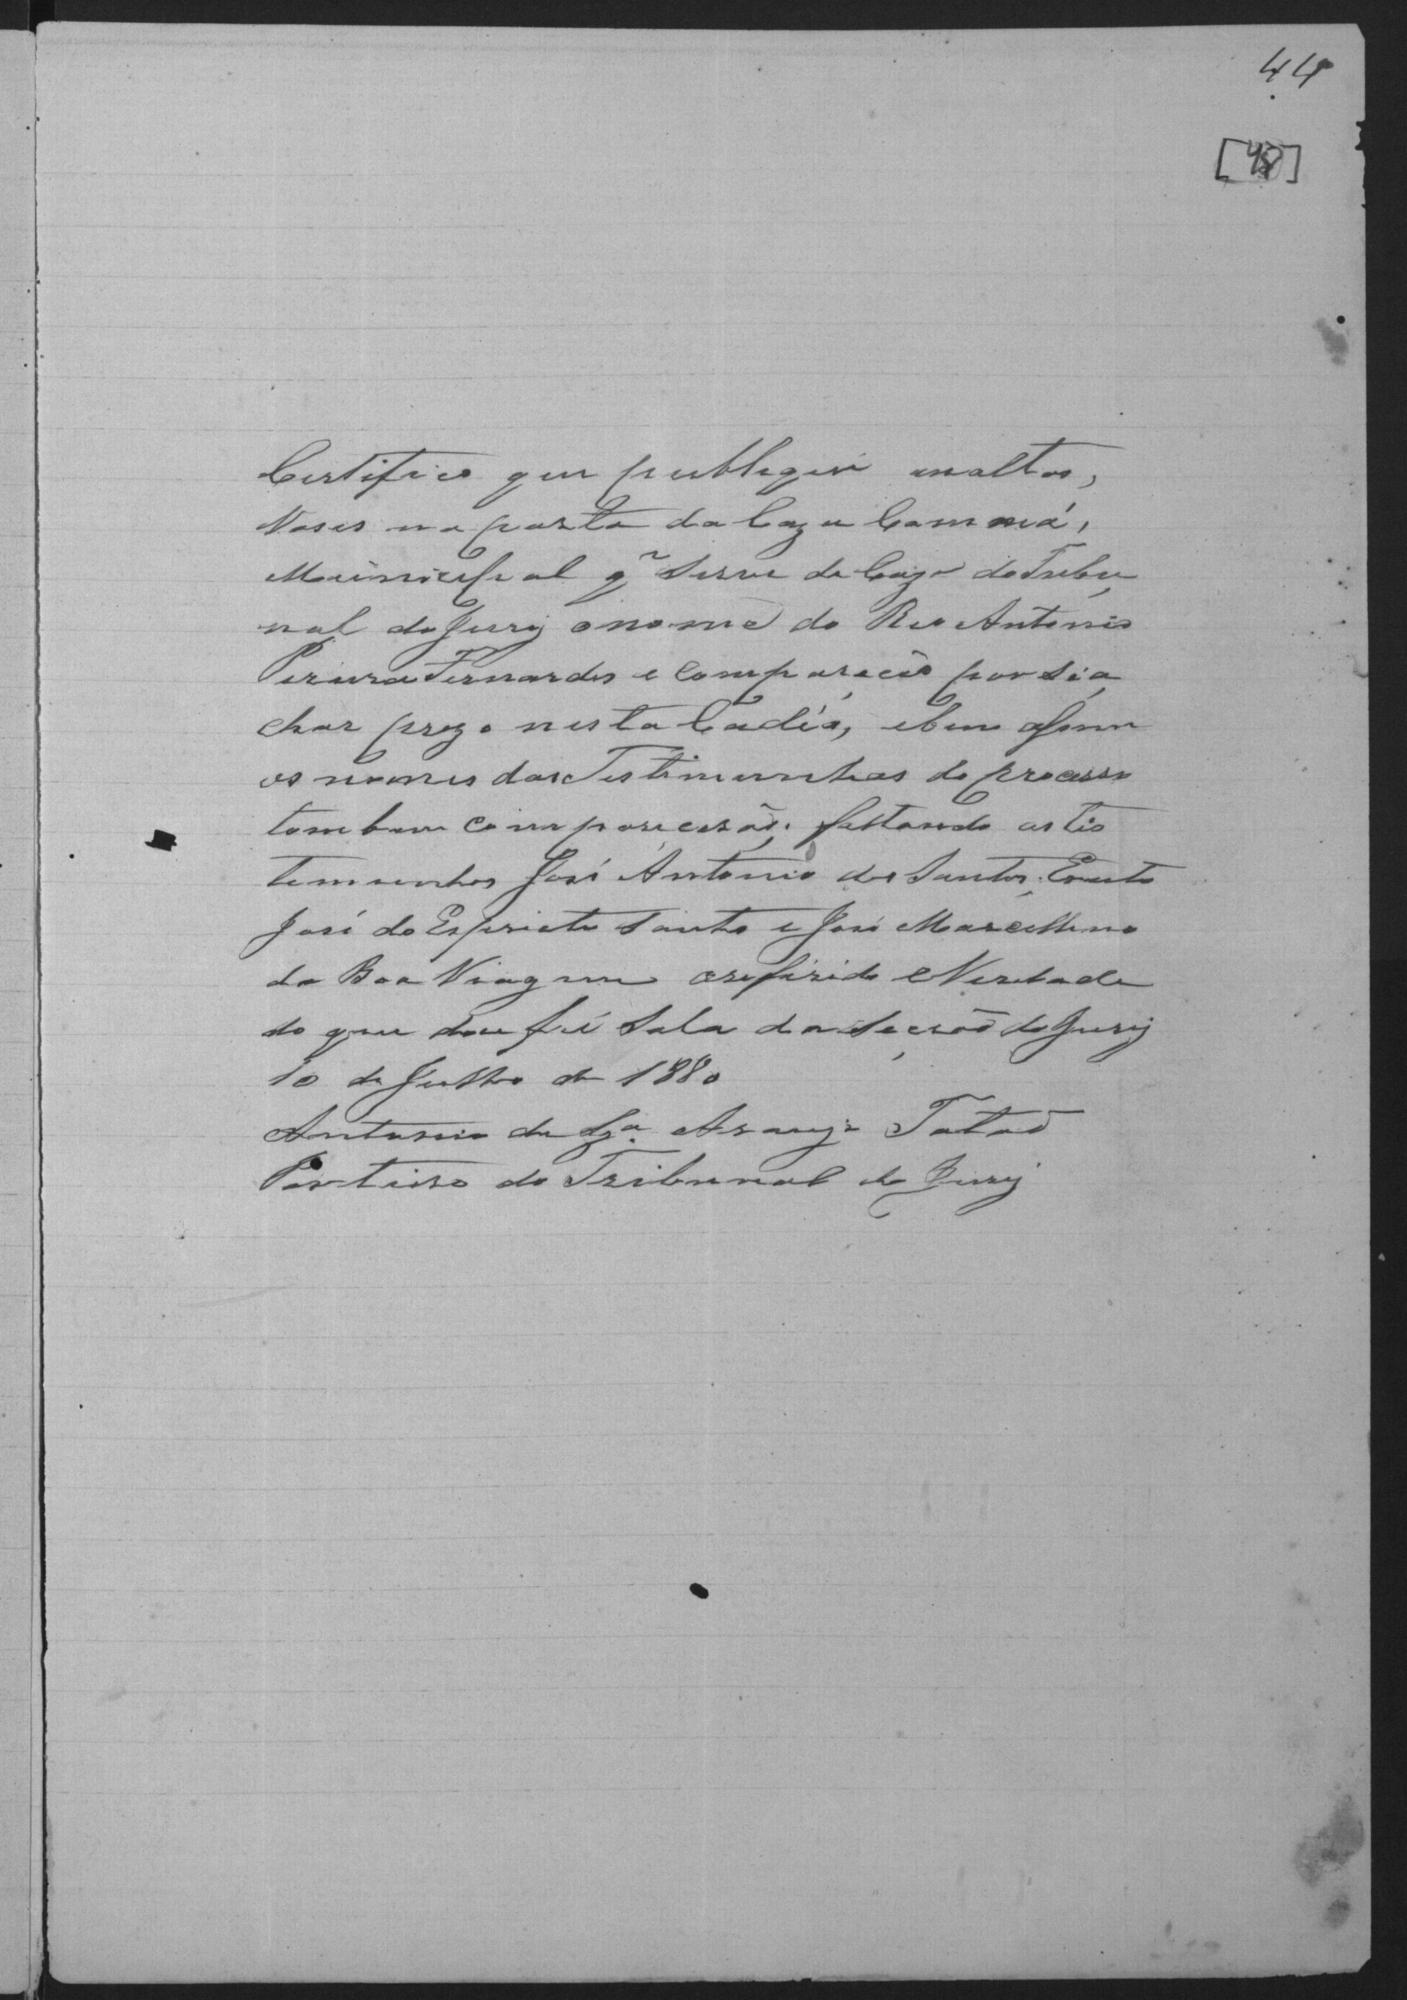 44
[48]
Certifico que publiquei em altas,
Voses na porta da Caza Camara,
Municipal q̃ Serve de Caza do Tribu
nal do Jury o nome do Reo Antonio
Pereira Fernandes e compareceo por se a
char prezo nesta Cadéa, e bem assim
os nomes das Testimunhas do processo
tombem comparecerão, faltando as tes
temunhas José Antonio dos Santos,
José do Espirito Santo e José Marcellino
da Boa Viagem o referido e Verdade
do que dou fé Sala da Secção do Jury
10 de Julho de 1880
Antonio de Sza. Araujo Tatão
Porteiro do Tribunal do Jury